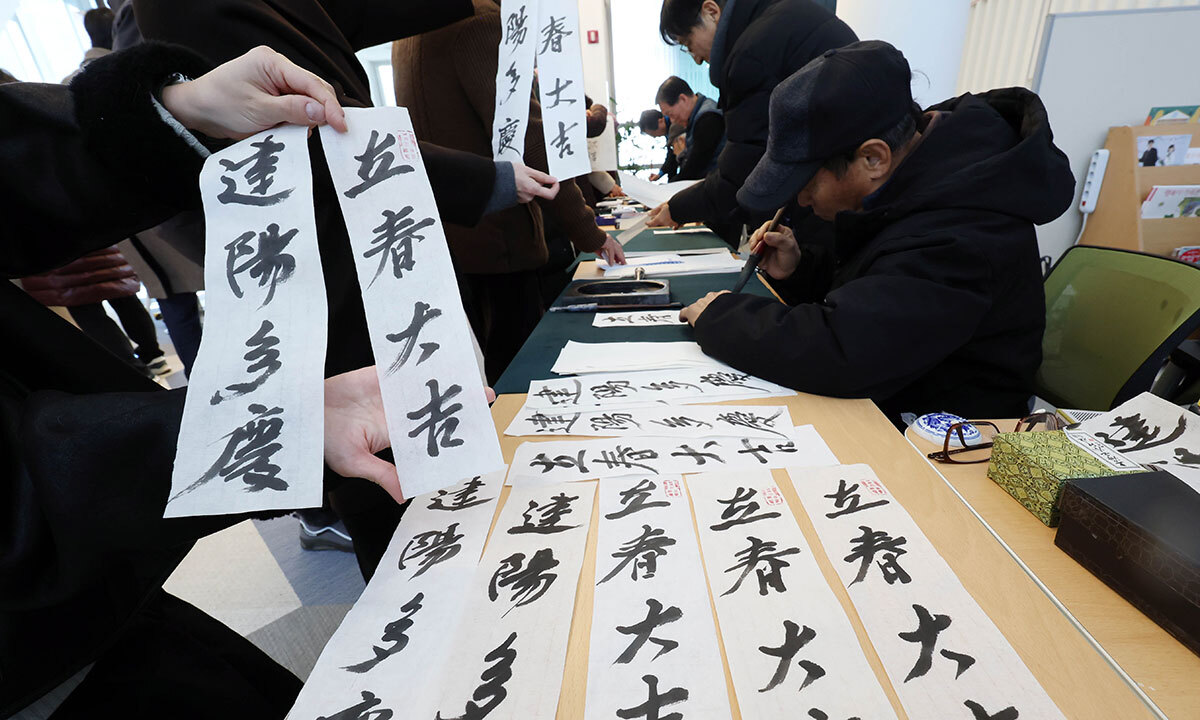 陽多慶
春大吉
建陽多慶
立春大吉
立春
建陽多慶
建陽多慶
立春大吉
建陽多慶
建陽多
立春大吉
立春大
立春大
建